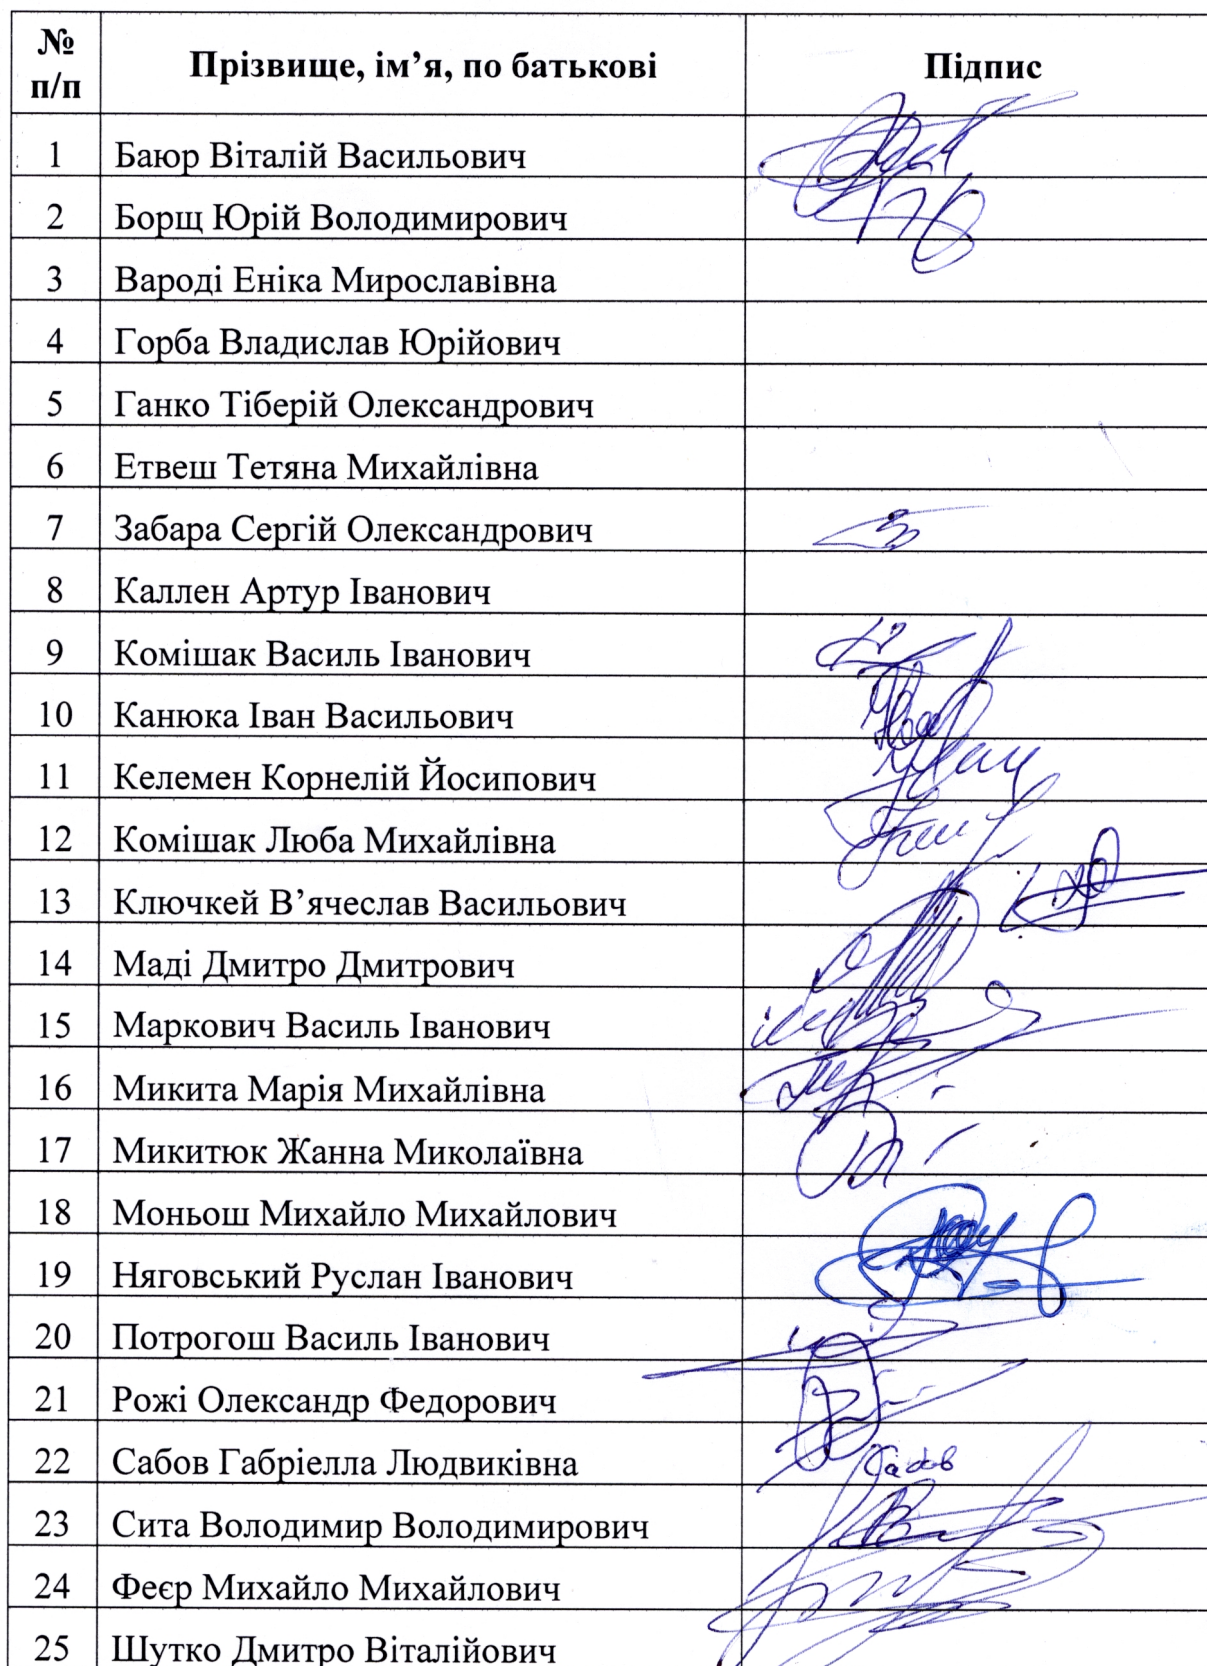 № п/п Прізвище, ім’я, по батькові Підпис
1 Баюр Віталій Васильович
2 Борщ Юрій Володимирович
3 Вароді Еніка Мирославівна
4 Горба Владислав Юрійович
5 Ганко Тіберій Олександрович
6 Етвеш Тетяна Михайлівна
7 Забара Сергій Олександрович
8 Каллен Артур Іванович
9 Комішак Василь Іванович
10 Канюка Іван Васильович
11 Келемен Корнелій Йосипович
12 Комішак Люба Михайлівна
13 Ключкей В’ячеслав Васильович
14 Маді Дмитро Дмитрович
15 Маркович Василь Іванович
16 Микита Марія Михайлівна
17 Микитюк Жанна Миколаївна
18 Моньош Михайло Михайлович
19 Няговський Руслан Іванович
20 Потрогош Василь Іванович
21 Рожі Олександр Федорович
22 Сабов Габріелла Людвиківна Сабов
23 Сита Володимир Володимирович
24 Феєр Михайло Михайлович
25 Шутко Дмитро Віталійович